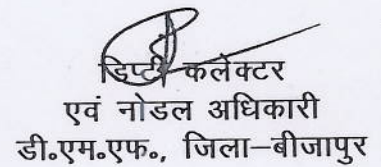 डिप्टी कलेक्टर
एवं नोडल अधिकारी
डी.एम.एफ., जिला–बीजापुर